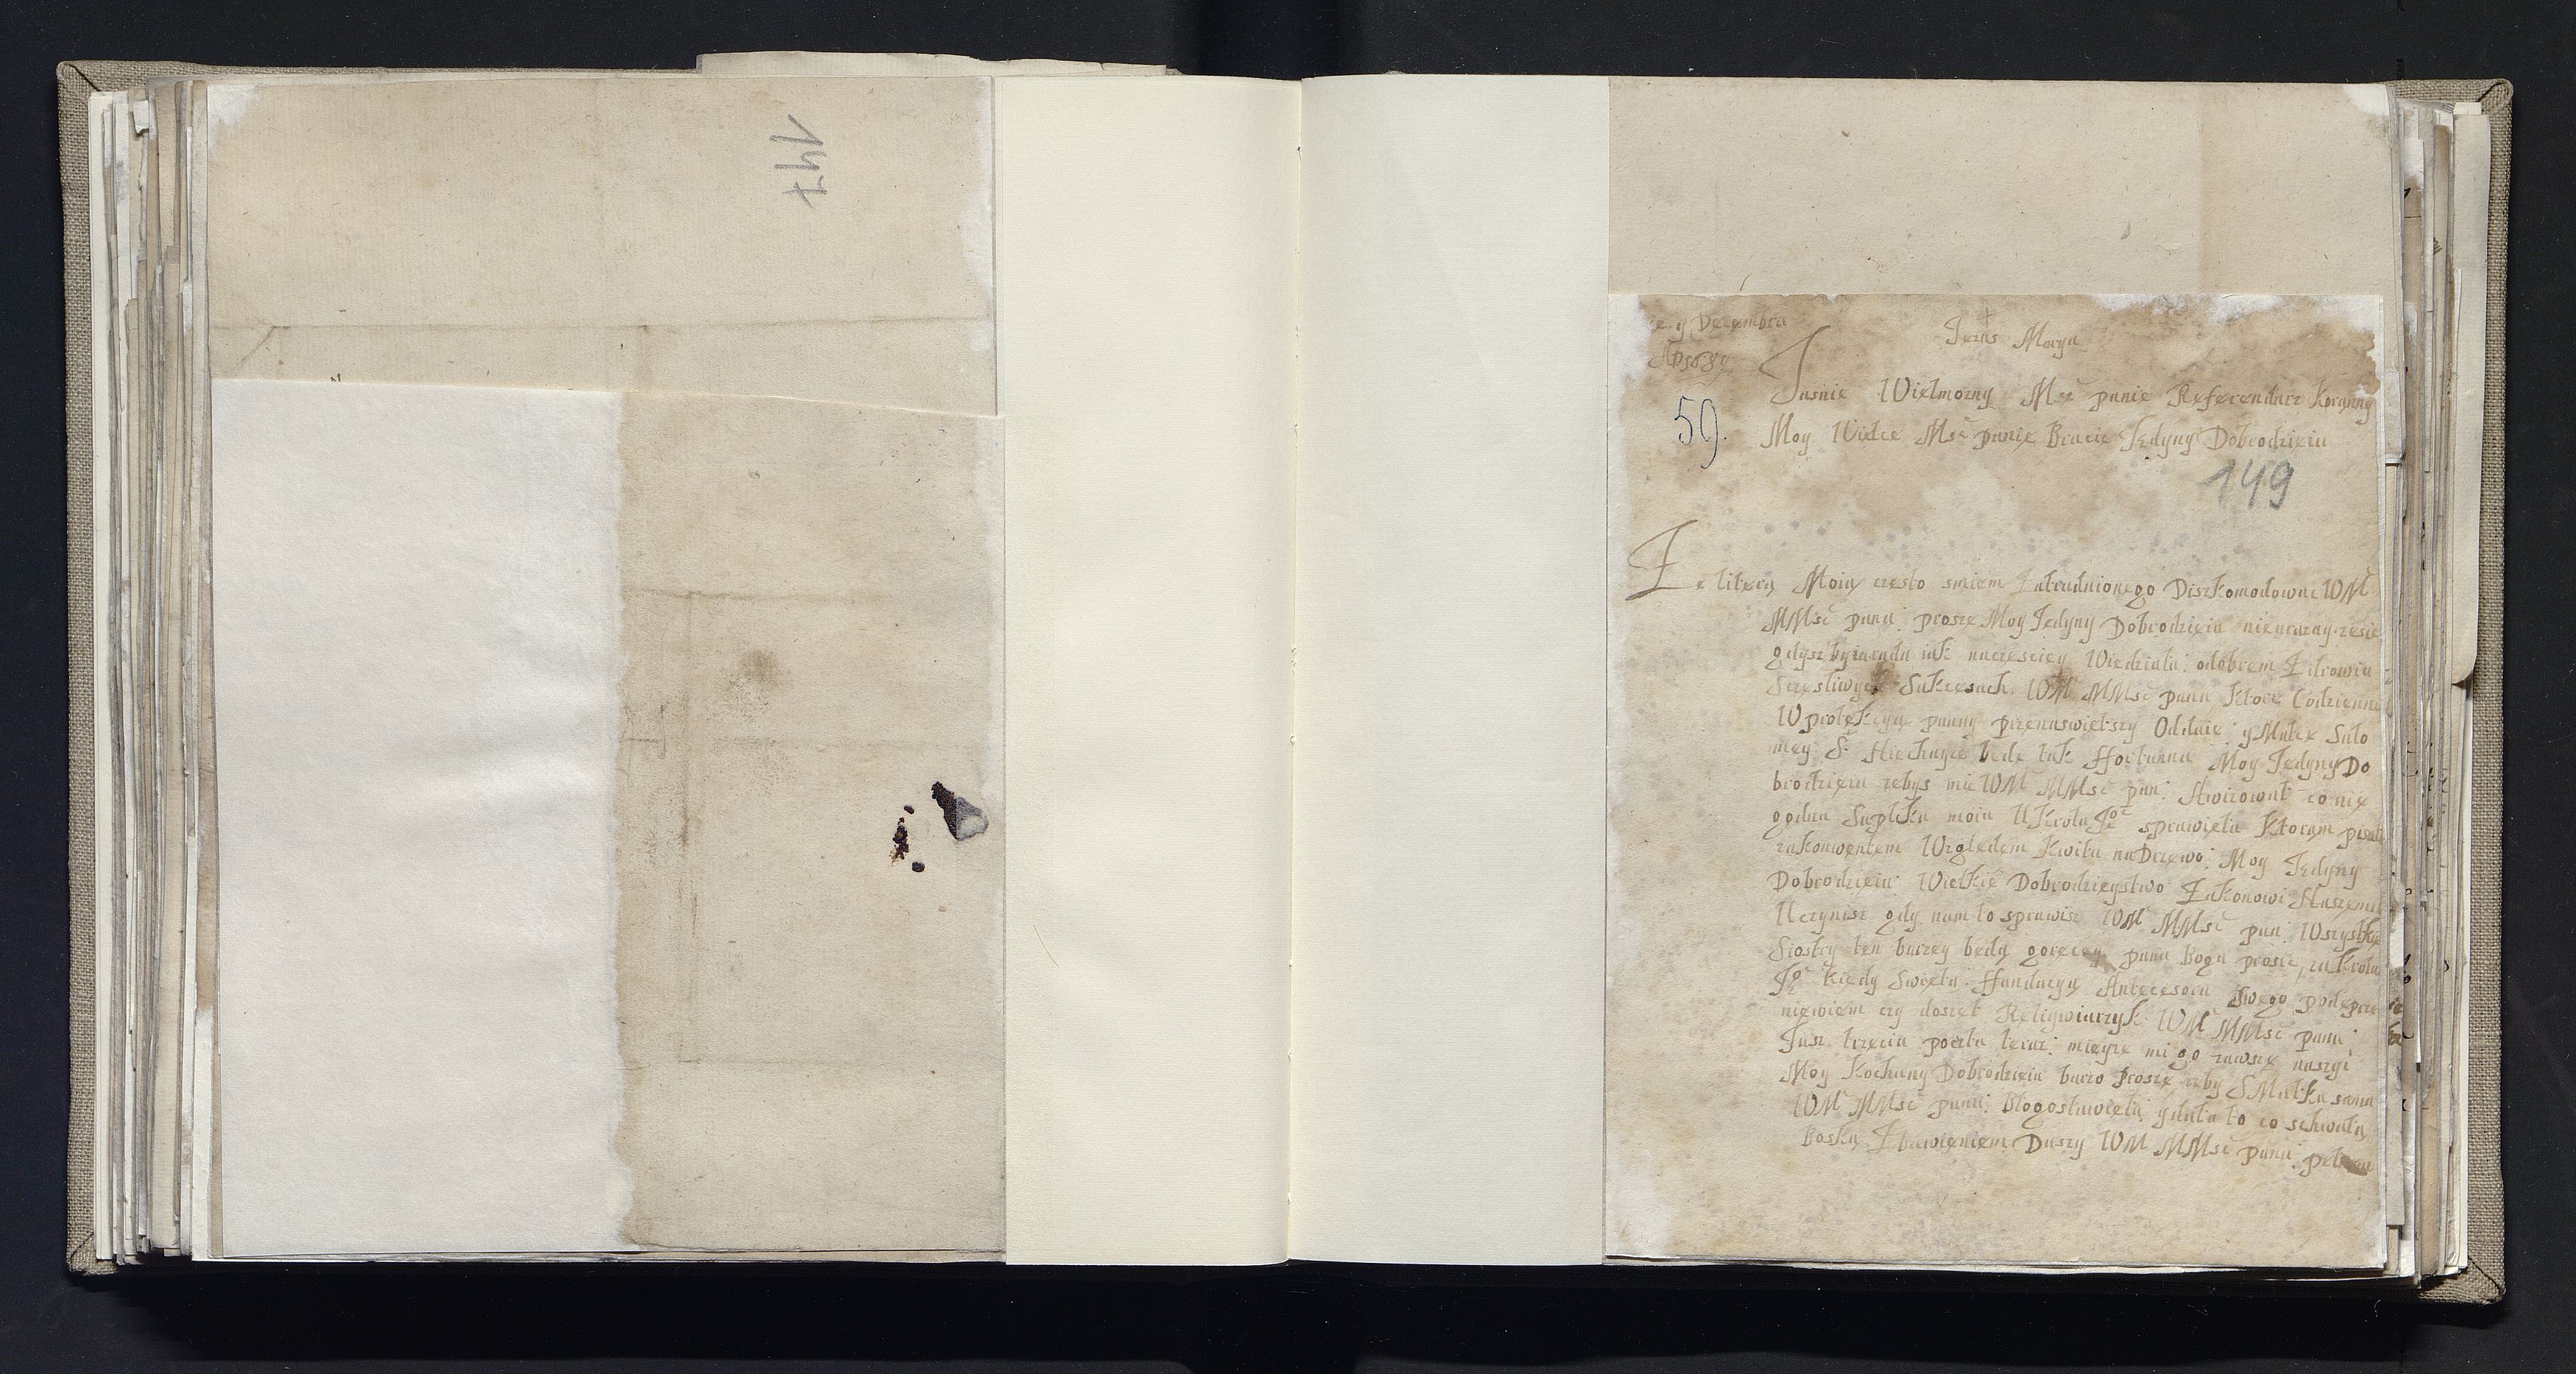 147
e y Decembra
Jezus Marya
59.
Jasnie Wielmozny Msc panie Referendarz Koronny
Moy Wielce Msc panie Bracie Jedyny Dobrodzieiu
149
Ze litera Moia czesto smiem Zatrudnionego Diszkomodowac WM
MMsc pana: prosze Moy Jedyny Dobrodzieiu nieurazay sie
gdysz byzarada iak naczesciey Wiedziala: odobrem Zdrowiu
Sczesliwych Sukcesach. WM MMsc pana Ktore Codzienne
W protekcya panny przenaswietszy Oddaie: y Matce Salo
mey S: Niechayze bede tak ffortunna Moy Jedyny Do
brodzieiu zebys mie WM MMsc pan: Awizowal co nie
godna Suplika moia U Krola Jo sprawiela Ktoram pisala
zakonwentem Wzgledem Kwitu na Drzewo: Moy Jedyny
Dobrodzieiu Wielkie Dobrodzieystwo Zakonowi Naszemu
Uczynisz gdy nam to sprawisz WM MMsc pan: Wszystkie
Siostry ten barzey beda gorecey pana Boga prosic, za Krola
Jo kiedy Swieta ffundacya Antecesora Swego podeprze
niewiem czy doszet Religwiarzyk WM MMsc pana
Jusz trzecia poczta teraz: mieyze mi go zawsze naszyi
Moy Kochany Dobrodzieiu barzo prosze zeby S Matka sama
WM MMsc pana: Blogoslawiela ydala to co schwala
Boska Zbawieniem Duszy WM MMsc pana: